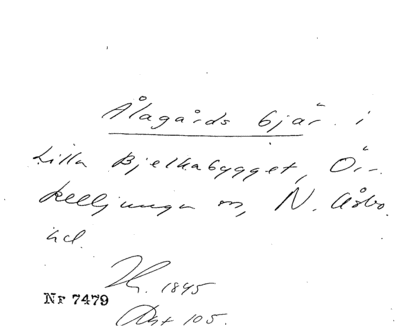 Ålagårds bjär i
Lilla Bjelkabygget, Ör-
kelljunga sn, N. Åsbo
hd.
1845
Nr 7479
Akt 105.